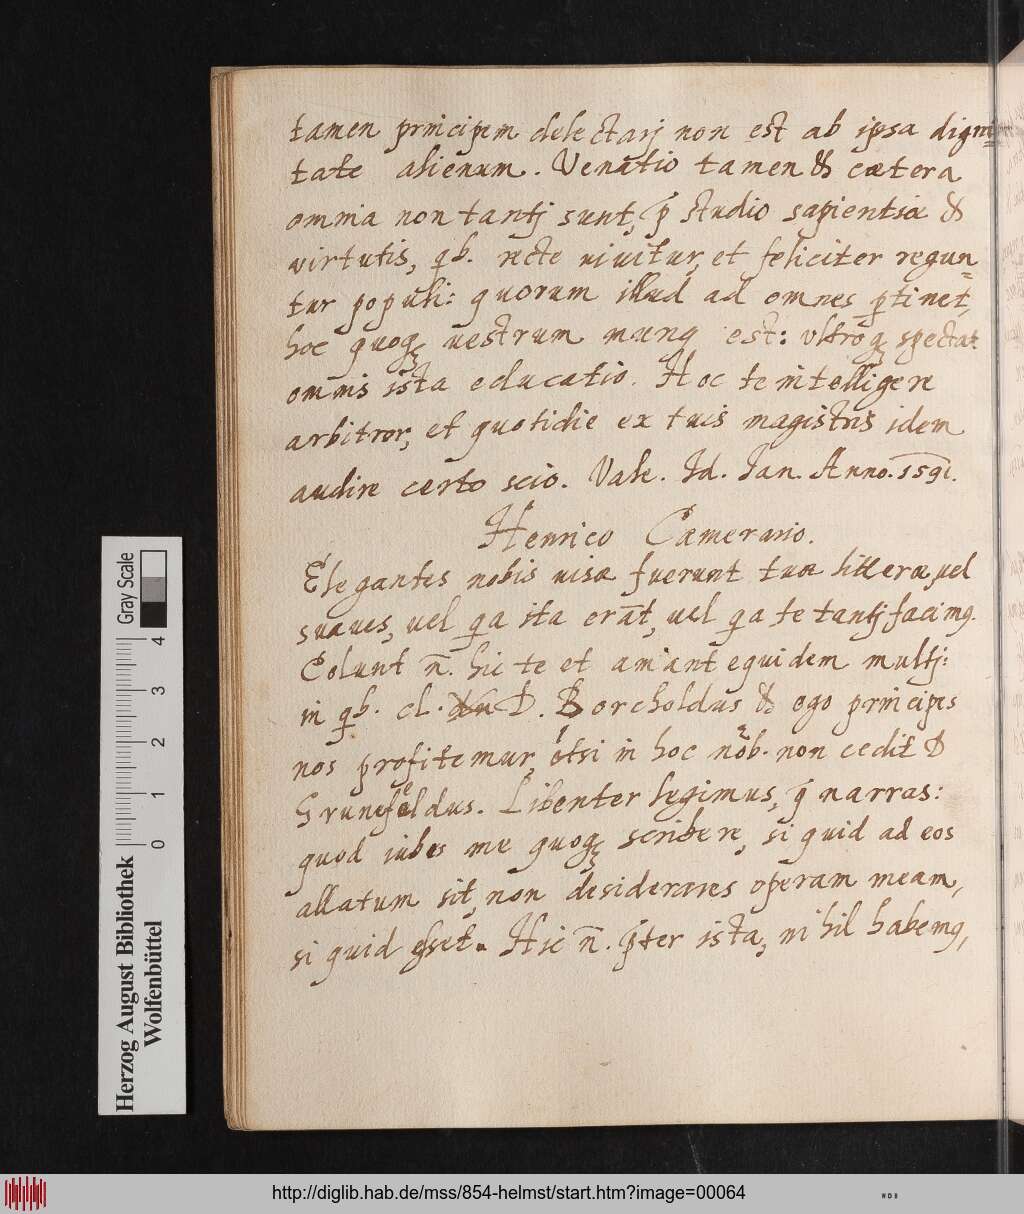 tamen principem delectarj non est ab ipsa digni=
tate alienum. Venatio tamen & cætera
omnia non tantj sunt, q̃ studio sapientiæ &
virtutis, qb. recte uiuitur, et feliciter regun=
tur populi: quorum illud ad omnes ꝑtinet,
hoc quoqꝫ uestrum munꝰ est: vltroqꝫ spectat
omnis ista educatio. Hoc te intelligere
arbitror, et quotidie ex tuis magistris idem
audire certo scio. Vale. Id. Ian. Anno. 1591.
Henrico Camerario.
Elegantes nobis uisæ fuerunt tuæ litteræ, uel
suaues, uel qa ita erãt, uel qa te tantj facimꝰ.
Colunt n̄. hic te et amant equidem multj:
in qb. cl. D. Borcholdus & ego principes
nos profitemur, etsi in hoc nob. non cedit D
Grunefeldus. Libenter legimus, q̃ narras:
quod iubes me quoqꝫ scribere, si quid ad eos
allatum sit, non desiderares operam meam,
si quid esset. Hic n̄. p̃ter ista, nihil habemꝰ,
Gray Scale
0 1 2 3 4
Herzog August Bibliothek
Wolfenbüttel
http://diglib.hab.de/mss/854-helmst/start.htm?image=00064